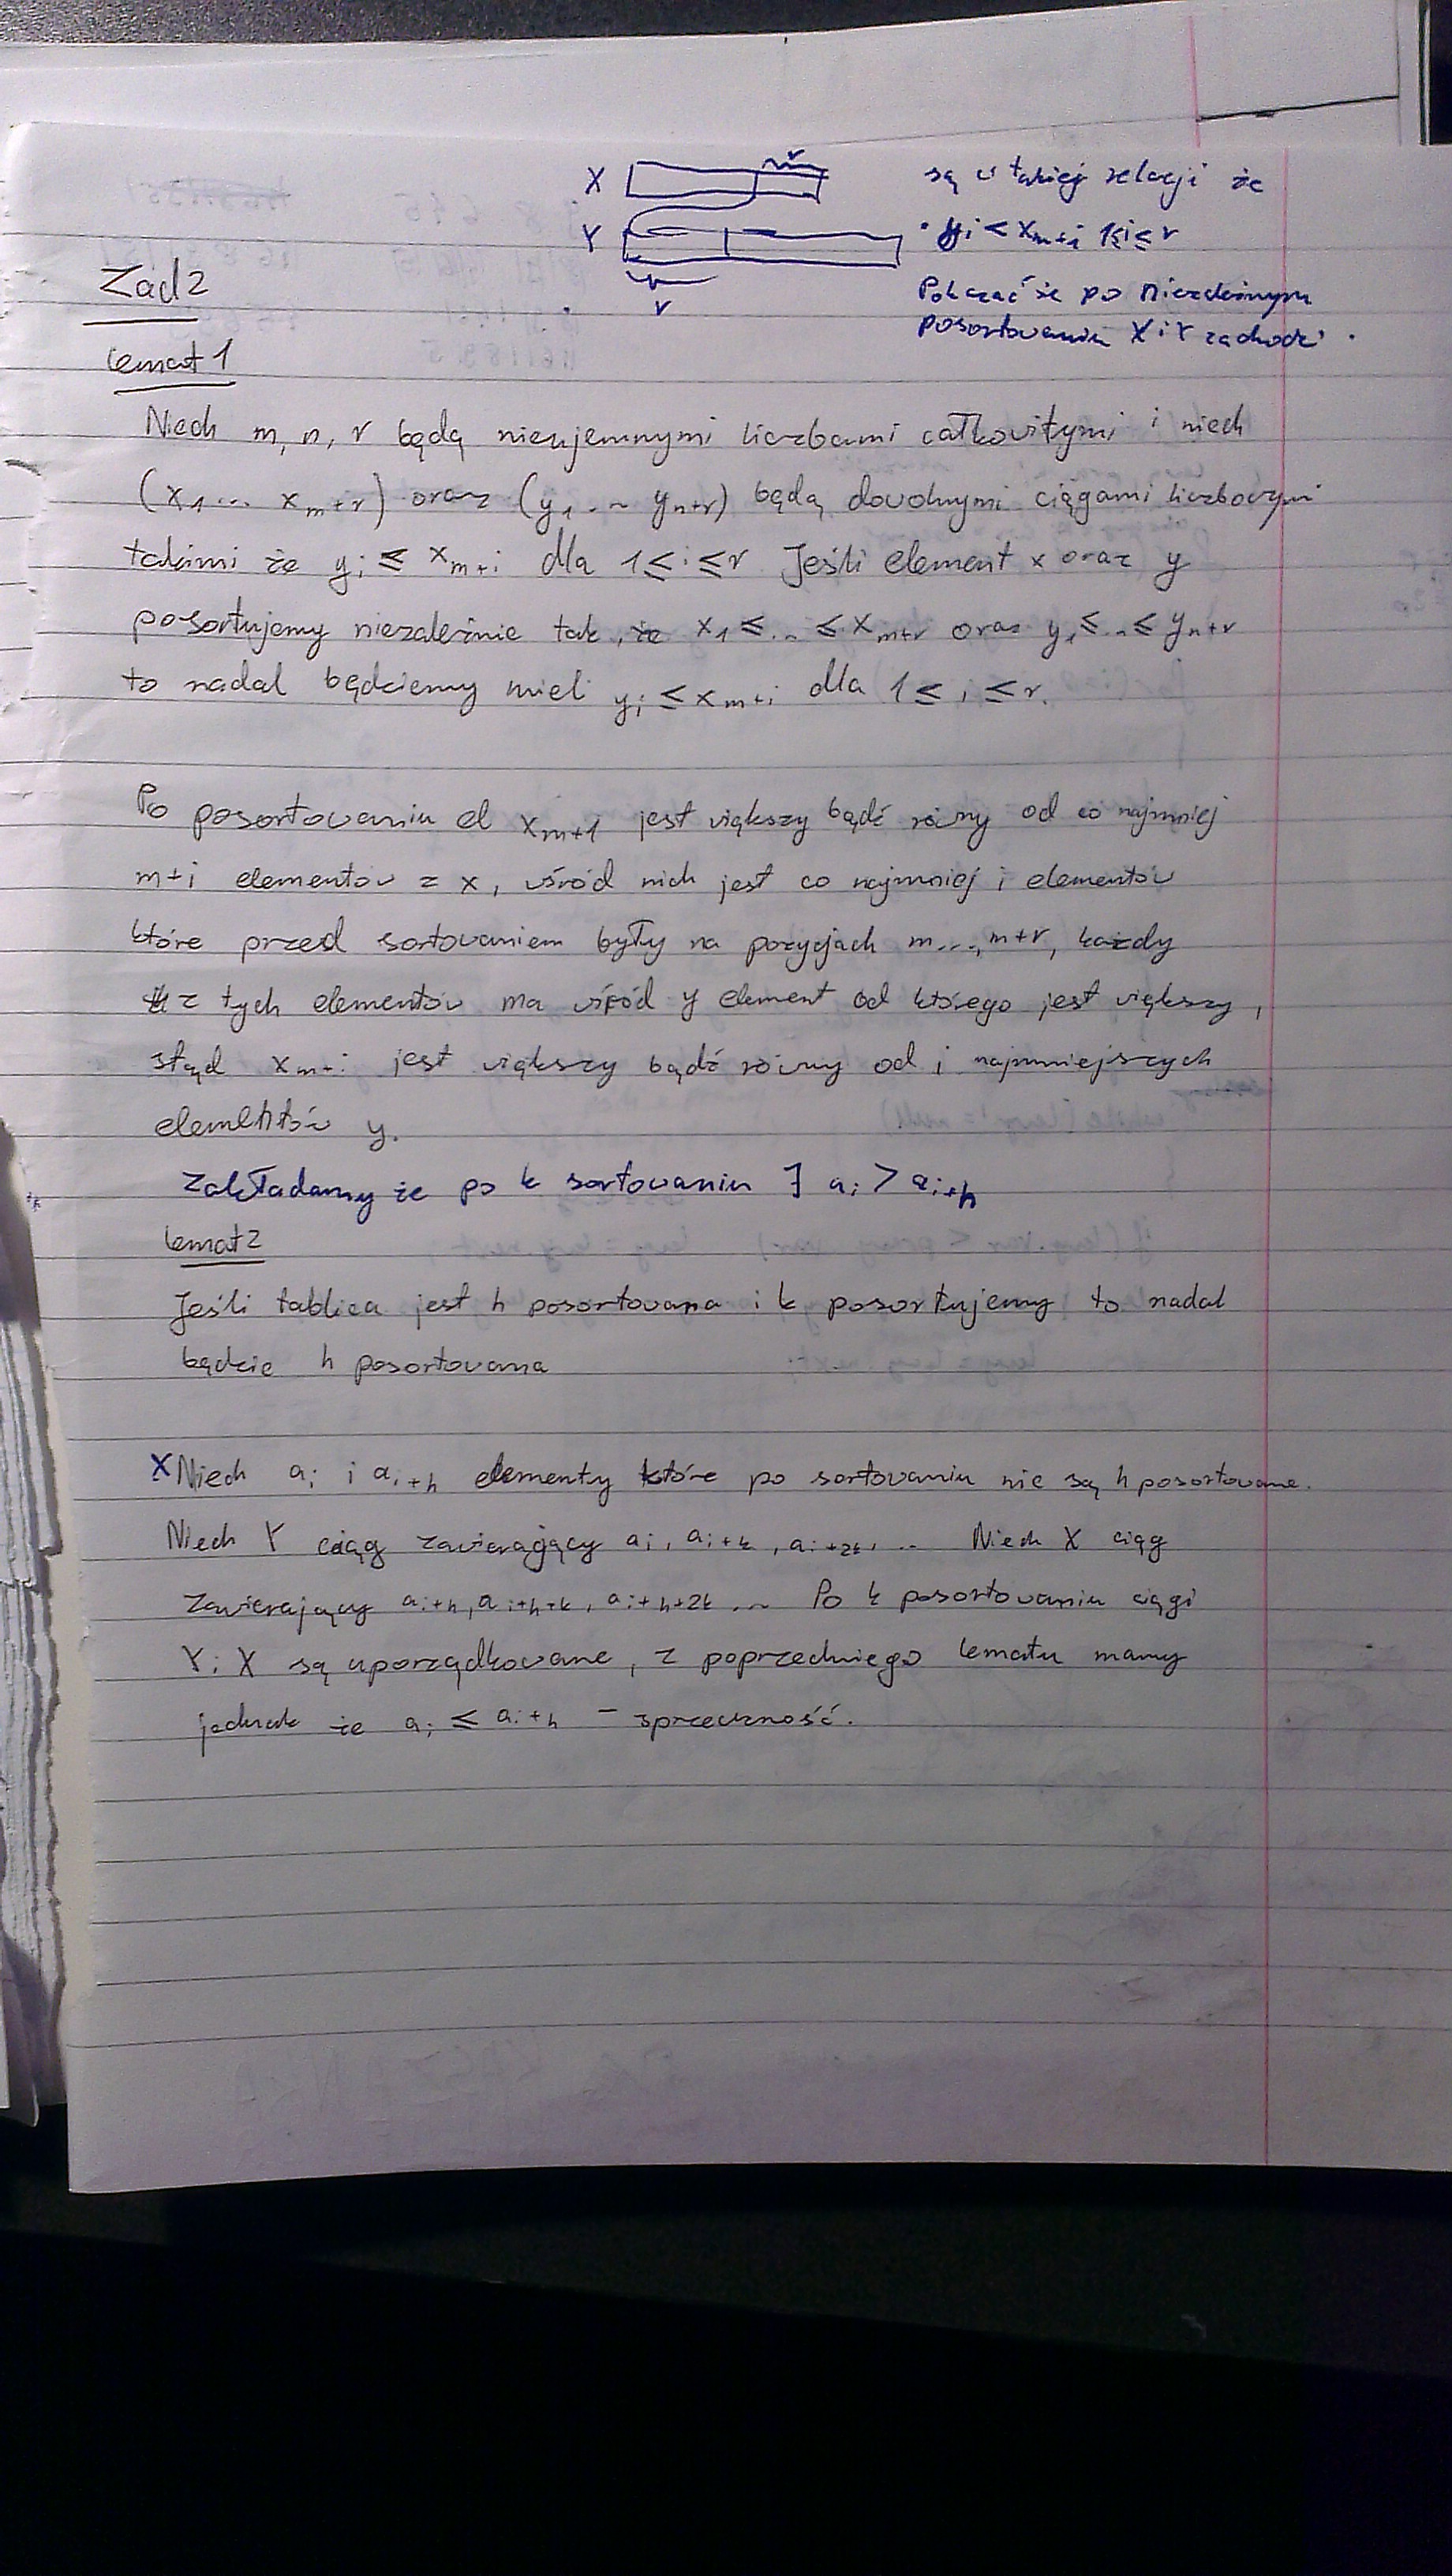 X r są w takiej relacji że
Y • yi < xm+i 1≤i≤r
r Pokazać że po niezależnym
posortowaniu X i Y zachodzi •
Zad 2
Lemat 1
Niech m, n, r będą nieujemnymi liczbami całkowitymi i niech
(x1... xm+r) oraz (y1... yn+r) będą dowolnymi ciągami liczbowymi
takimi że yi ≤ xm+i dla 1≤i≤r Jeśli element x oraz y
posortujemy niezależnie tak, że x1 ≤ ... ≤ xm+r oraz y1 ≤ ... ≤ yn+r
to nadal będziemy mieli yi ≤ xm+i dla 1 ≤ i ≤ r.
Po posortowaniu el xm+1 jest większy bądź równy od co najmniej
m+i elementów z x, wśród nich jest co najmniej i elementów
które przed sortowaniem były na pozycjach m..., m+r, każdy
z tych elementów ma wśród y element od którego jest większy,
stąd xm+i jest większy bądź równy od i najmniejszych
elementów y.
Zakładamy że po k sortowaniu ∃ ai > ai+h
Lemat 2
Jeśli tablica jest h posortowana i k posortujemy to nadal
będzie h posortowana
X Niech ai i ai+h elementy które po sortowaniu nie są h posortowane.
Niech Y ciąg zawierający ai, ai+k, ai+2k, ... Niech X ciąg
zawierający ai+h, ai+h+k, ai+h+2k ... Po k posortowaniu ciągi
Y i X są uporządkowane, z poprzedniego lematu mamy
jednak że ai ≤ ai+h - sprzeczność.